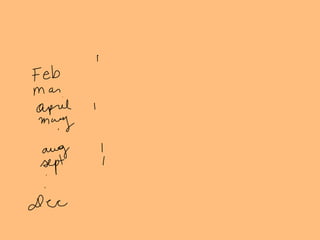 1
Feb
mar
april 1
may
.
aug 1
sept 1
.
.
Dec